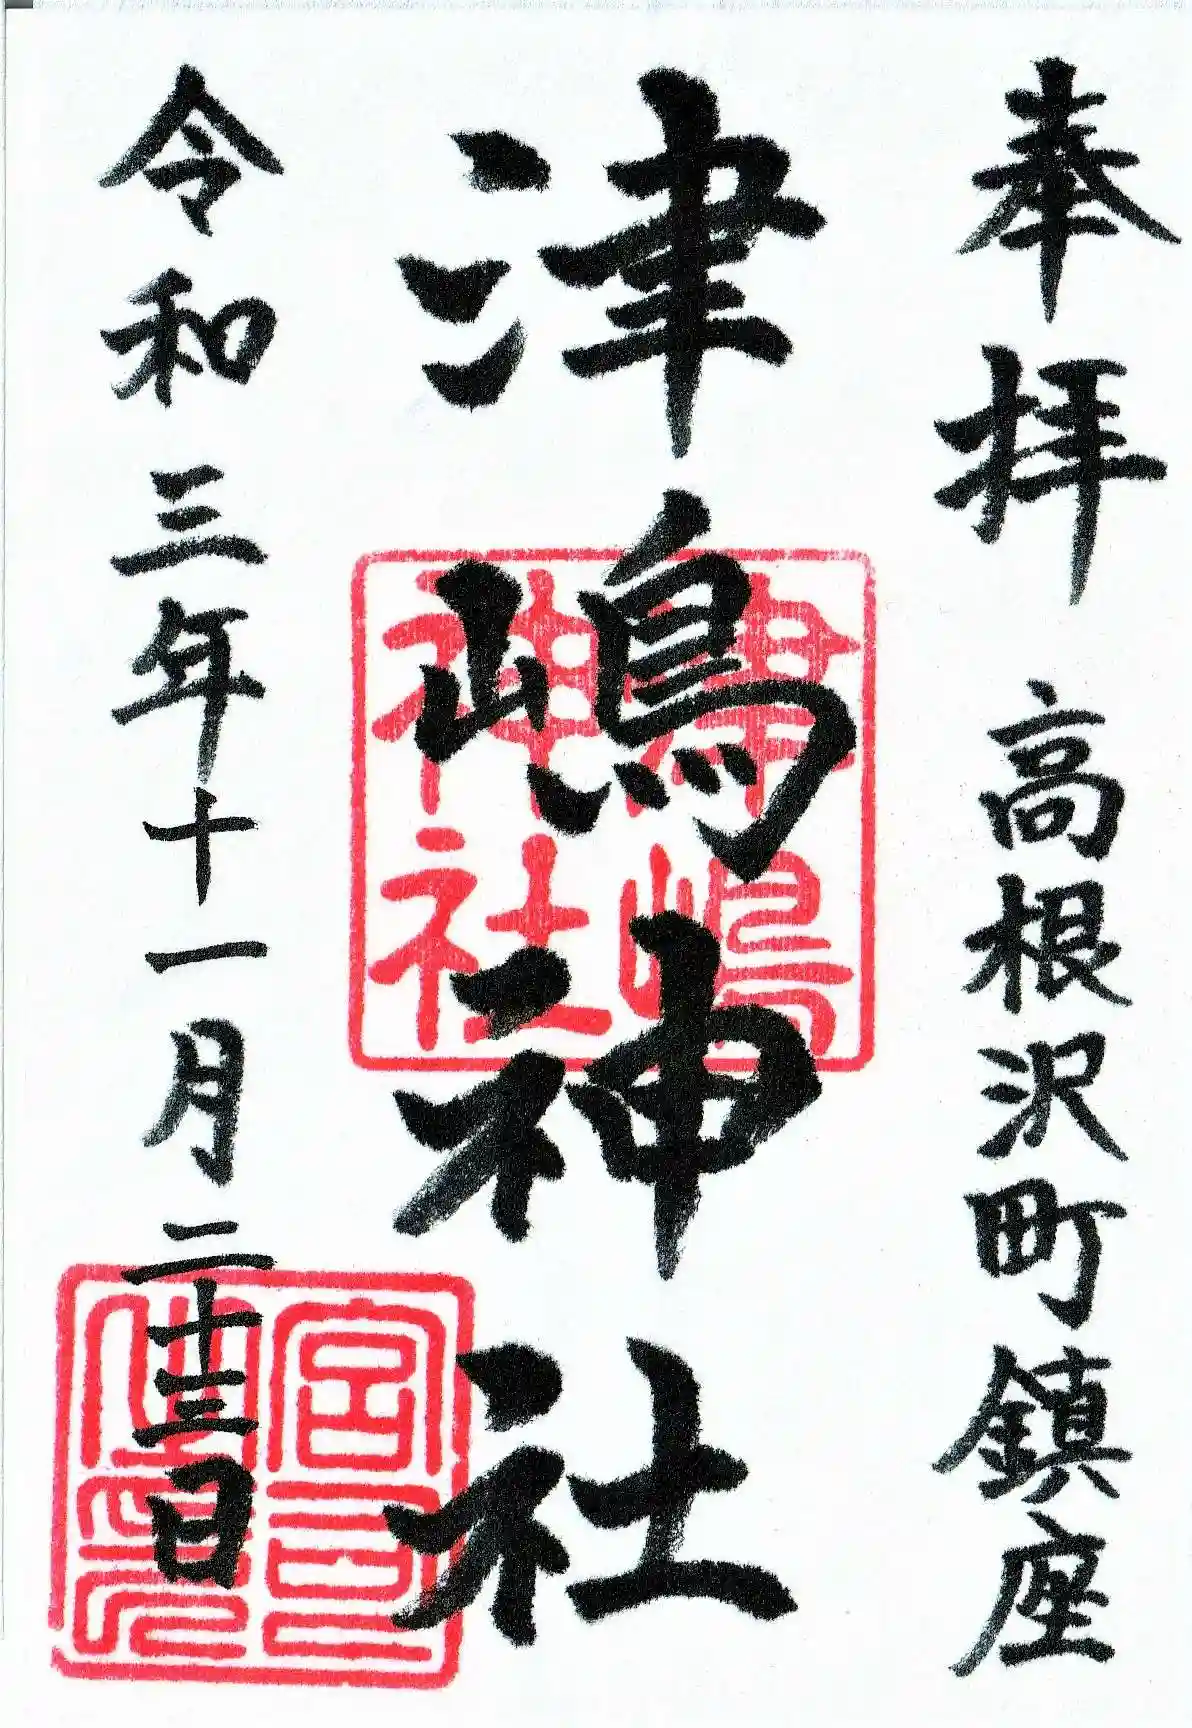 奉拝 高根沢町鎮座
津嶋神社
津嶋
神社
令和三年十一月二十三日
宮司
之印